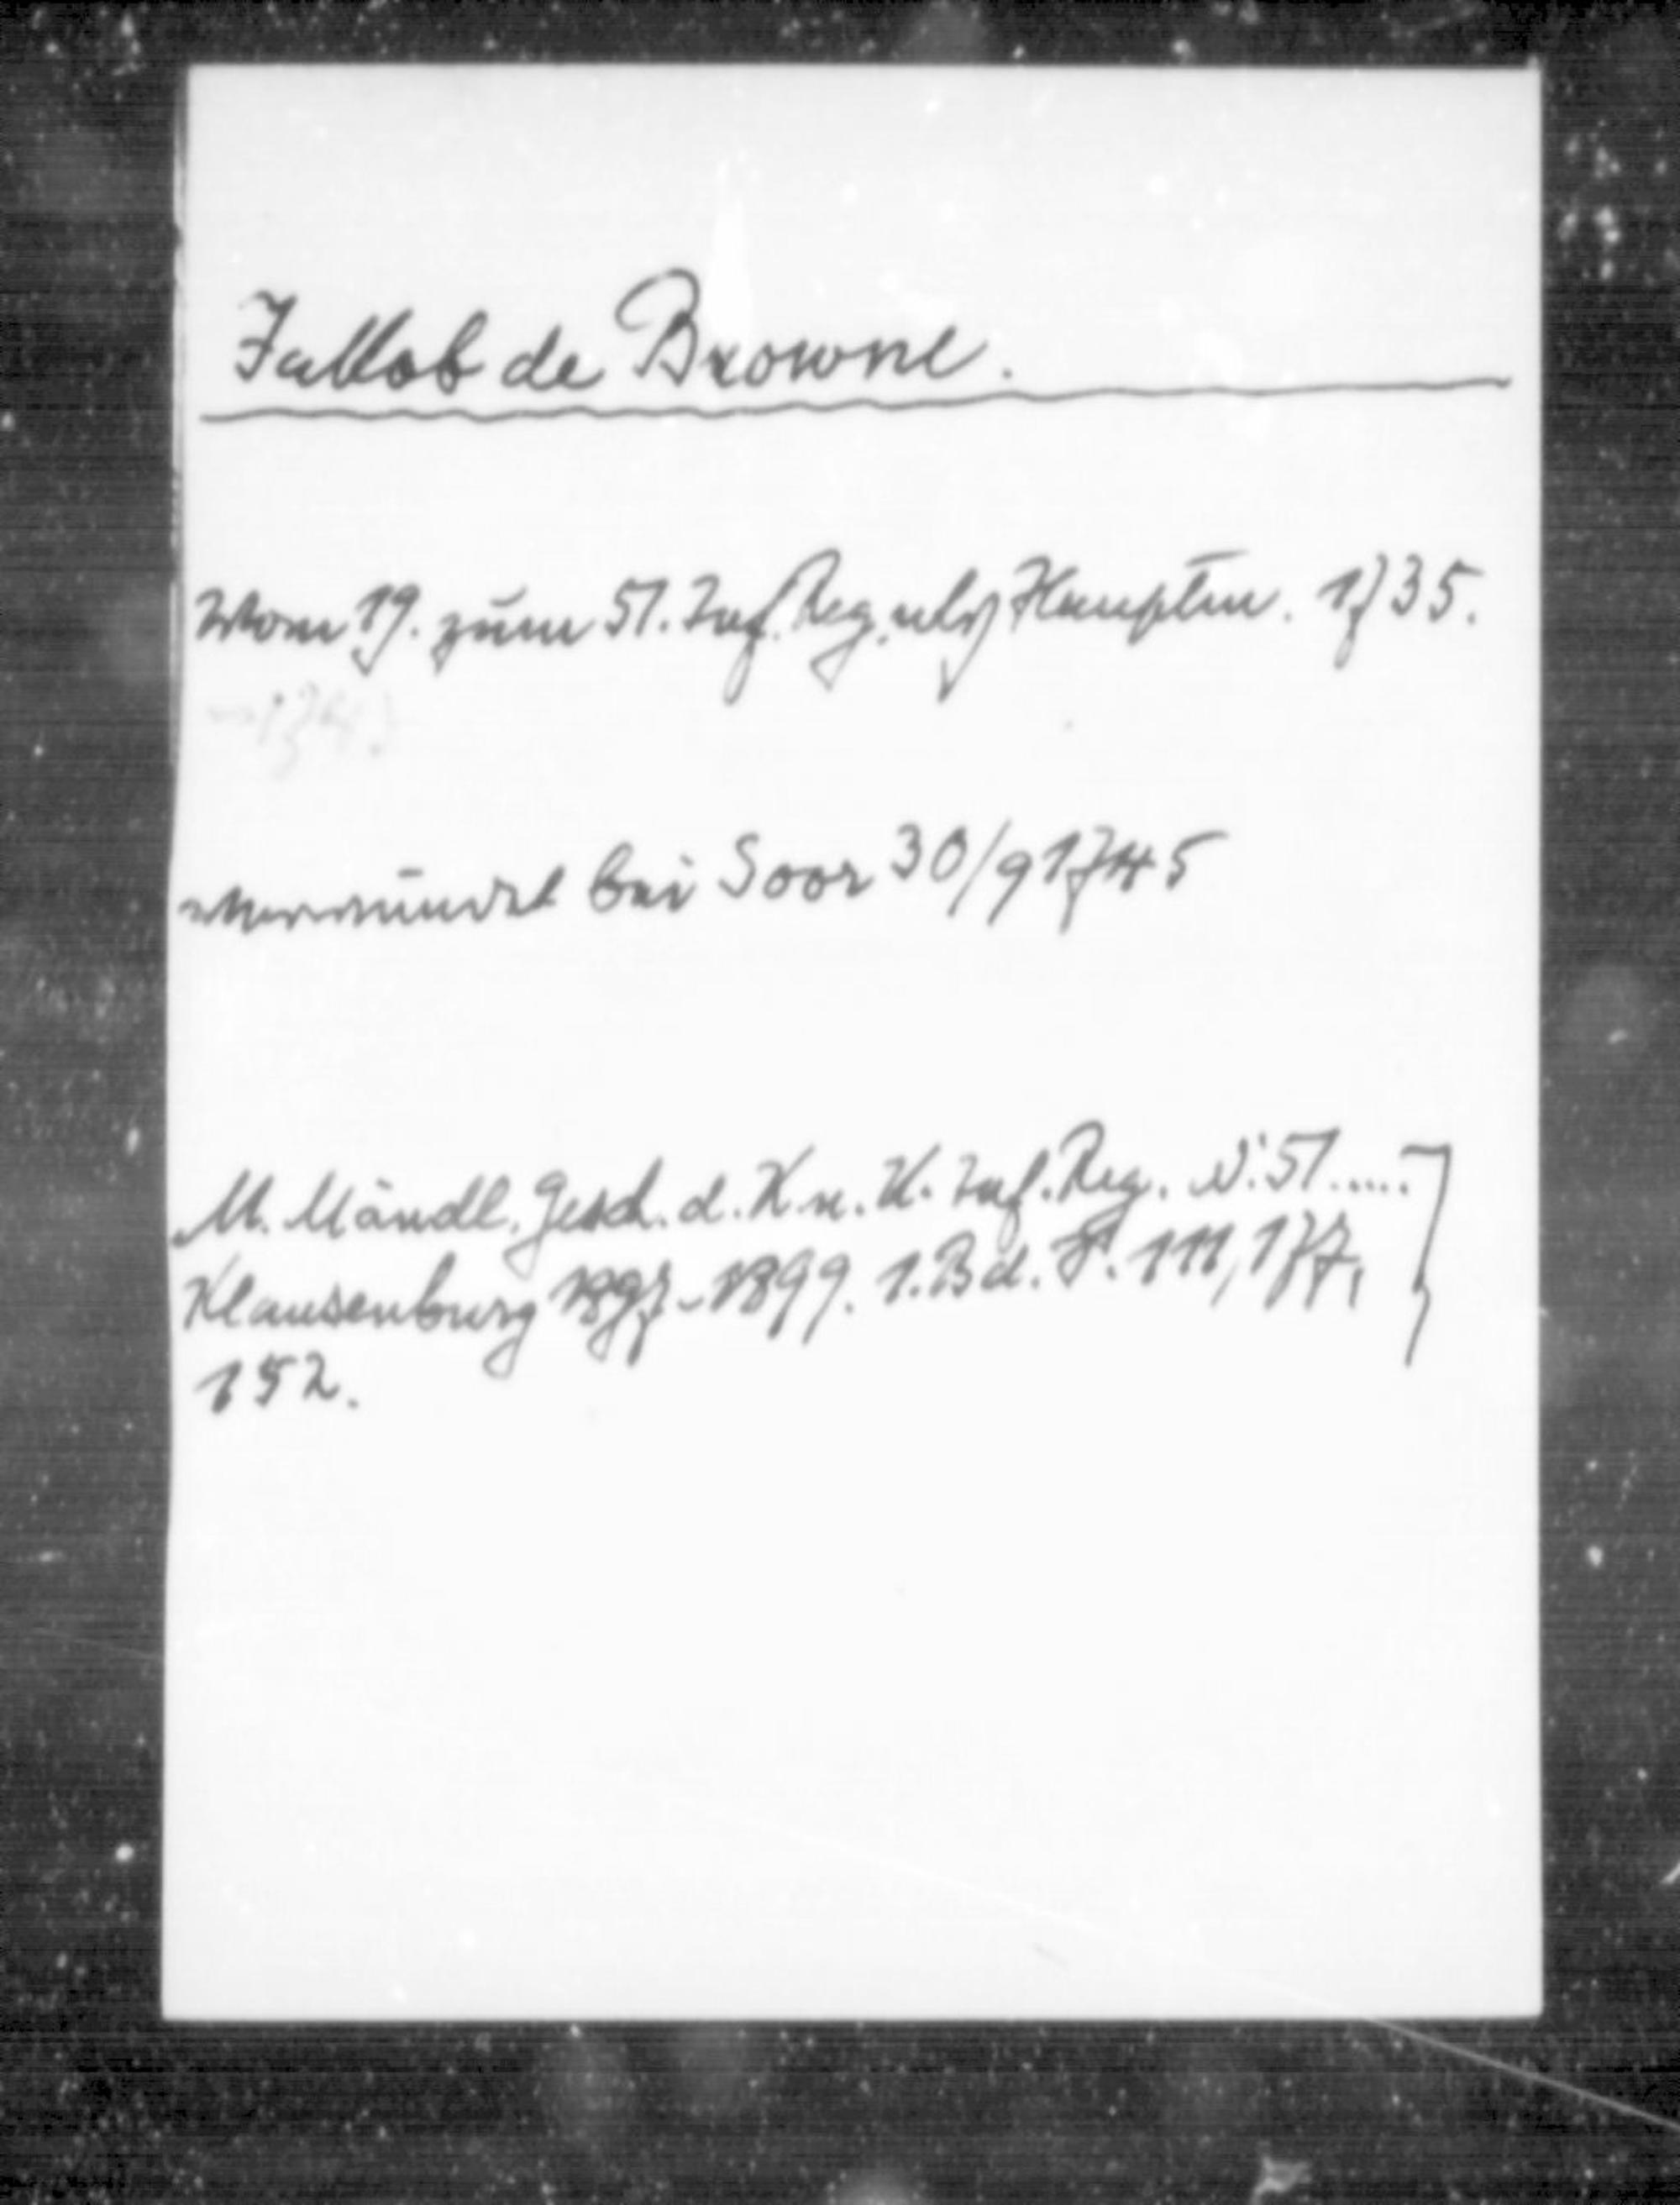 Jakob de Browne.
Vom 19. zum 51. Inf. Reg. als Hauptm. 1735.
verwundet bei Soor 30/9 1745
M. Mändl. Gesch. d. K u. K. Inf. Reg. N. 51.....
Klausenburg 1897-1899. 1. Bd. S. 111, 177,
152.